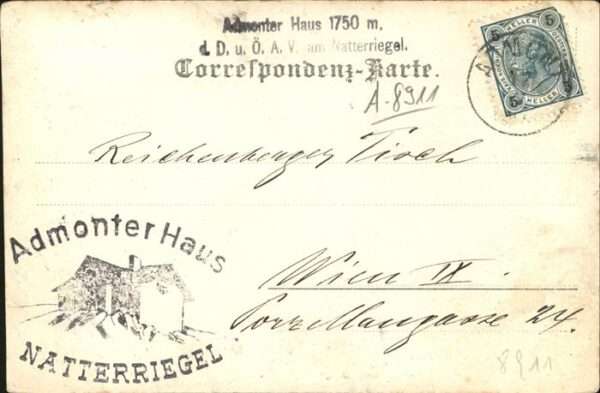 Admonter Haus 1750 m,
d. D. u. Ö. A. V. am Natterriegel.
Correspondenz-Karte.
A-8911
5 HELLER 5
5 HELLER 5
Reichenberger Tisch
Admonter Haus
NATTERRIEGEL
Wien IX.
Porzellangasse 24.
8911